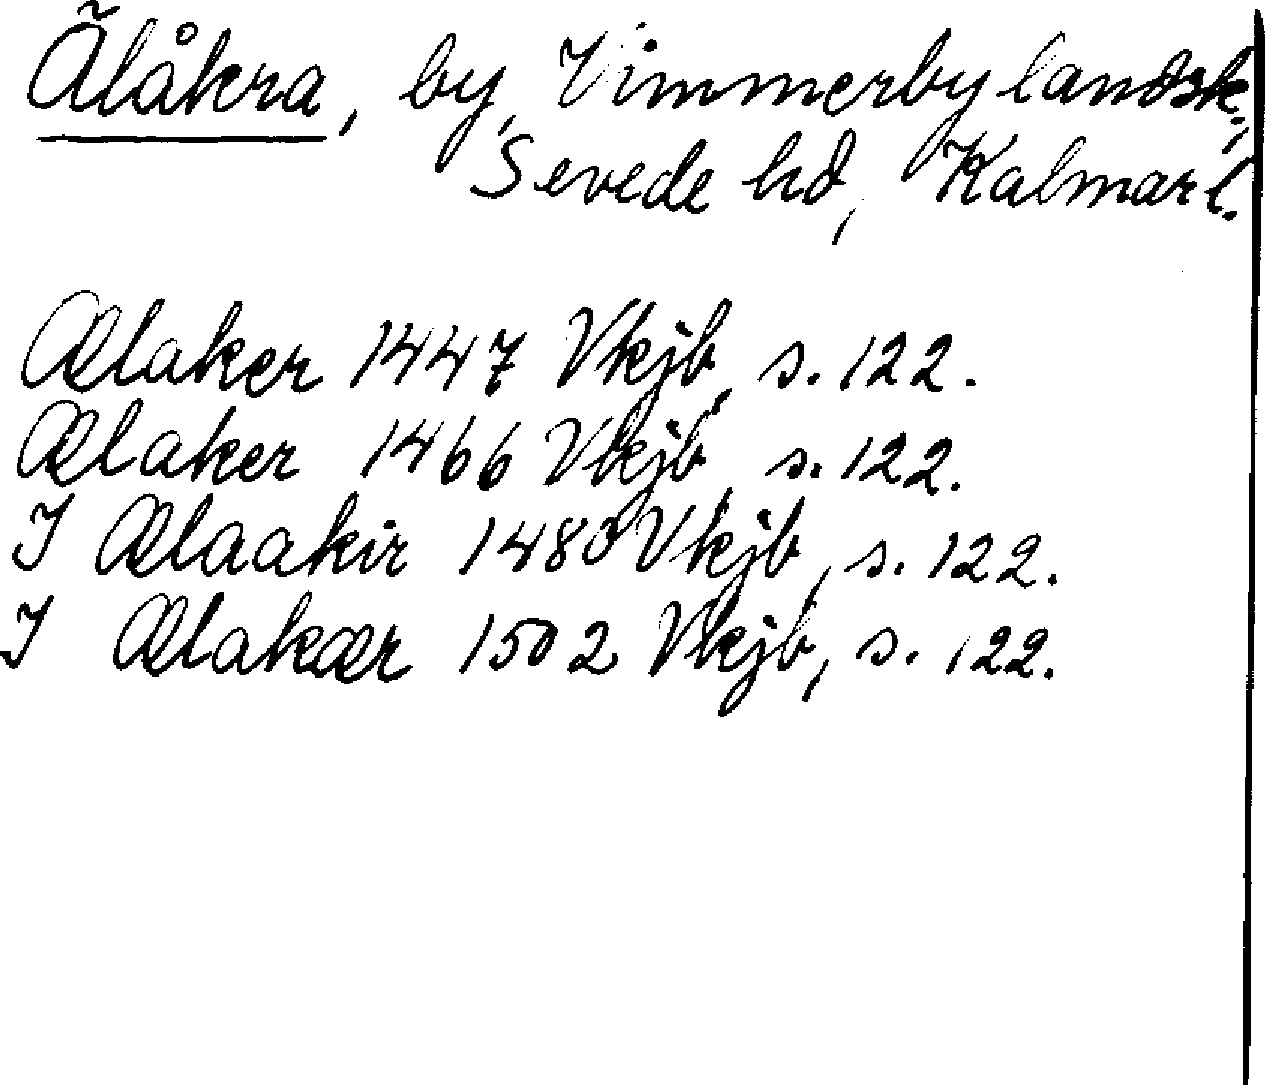 Älåkra, by, Vimmerby landsk.,
Sevede hd, Kalmar l.
Ælaker 1447 Vkjb, s. 122.
Ælaker 1466 Vkjb, s. 122.
I Ælaakir 1480 Vkjb, s. 122.
I Ælakær 1502 Vkjb, s. 122.